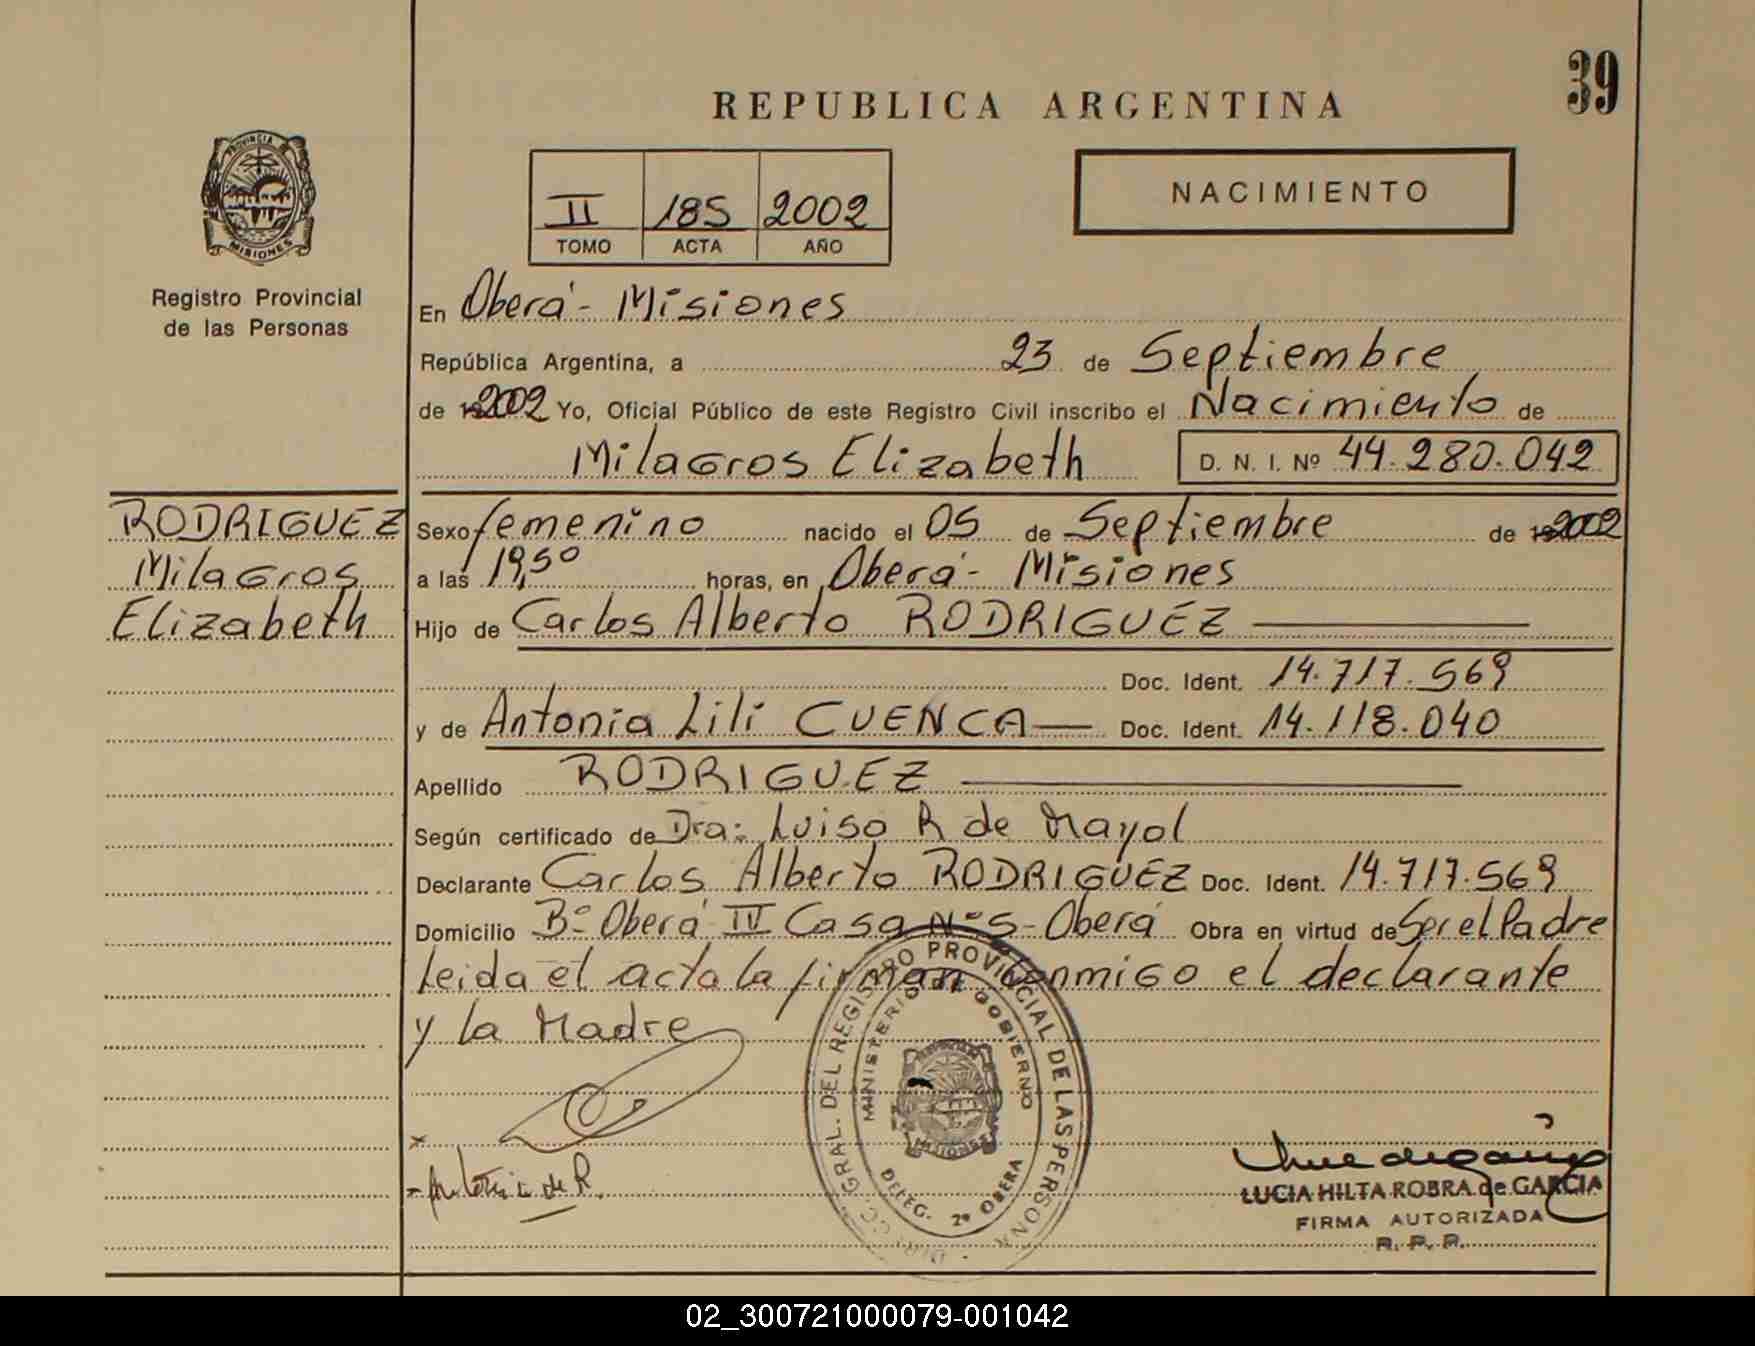 39
REPUBLICA ARGENTINA
PROVINCIA DE
MISIONES
Registro Provincial
de las Personas
II 185 2002
TOMO ACTA AÑO
NACIMIENTO
En Oberá - Misiones
República Argentina, a 23 de Septiembre
de 2002 Yo, Oficial Público de este Registro Civil inscribo el Nacimiento de
Milagros Elizabeth D. N. I. Nº 44.280.042
RODRIGUEZ
Milagros
Elizabeth
Sexo femenino nacido el 05 de Septiembre de 2002
a las 19,50 horas, en Oberá - Misiones
Hijo de Carlos Alberto RODRIGUEZ
Doc. Ident. 14.717.569
y de Antonia Lili CUENCA Doc. Ident. 14.118.040
Apellido RODRIGUEZ
Según certificado de Dra: Luisa R de Mayol
Declarante Carlos Alberto RODRIGUEZ Doc. Ident. 14.717.569
Domicilio Bº Oberá IV Casa Nº 5 - Oberá Obra en virtud de Ser el Padre
Leida el acta la firman conmigo el declarante
y la Madre
DIRECC. GRAL. DEL REGISTRO PROVINCIAL DE LAS PERSONAS
MINISTERIO DE GOBIERNO
MISIONES
DELEG. 2ª OBERA
Antonia de R.
LUCIA HILTA ROBRA de GARCIA
FIRMA AUTORIZADA
R. P. P.
02_300721000079-001042